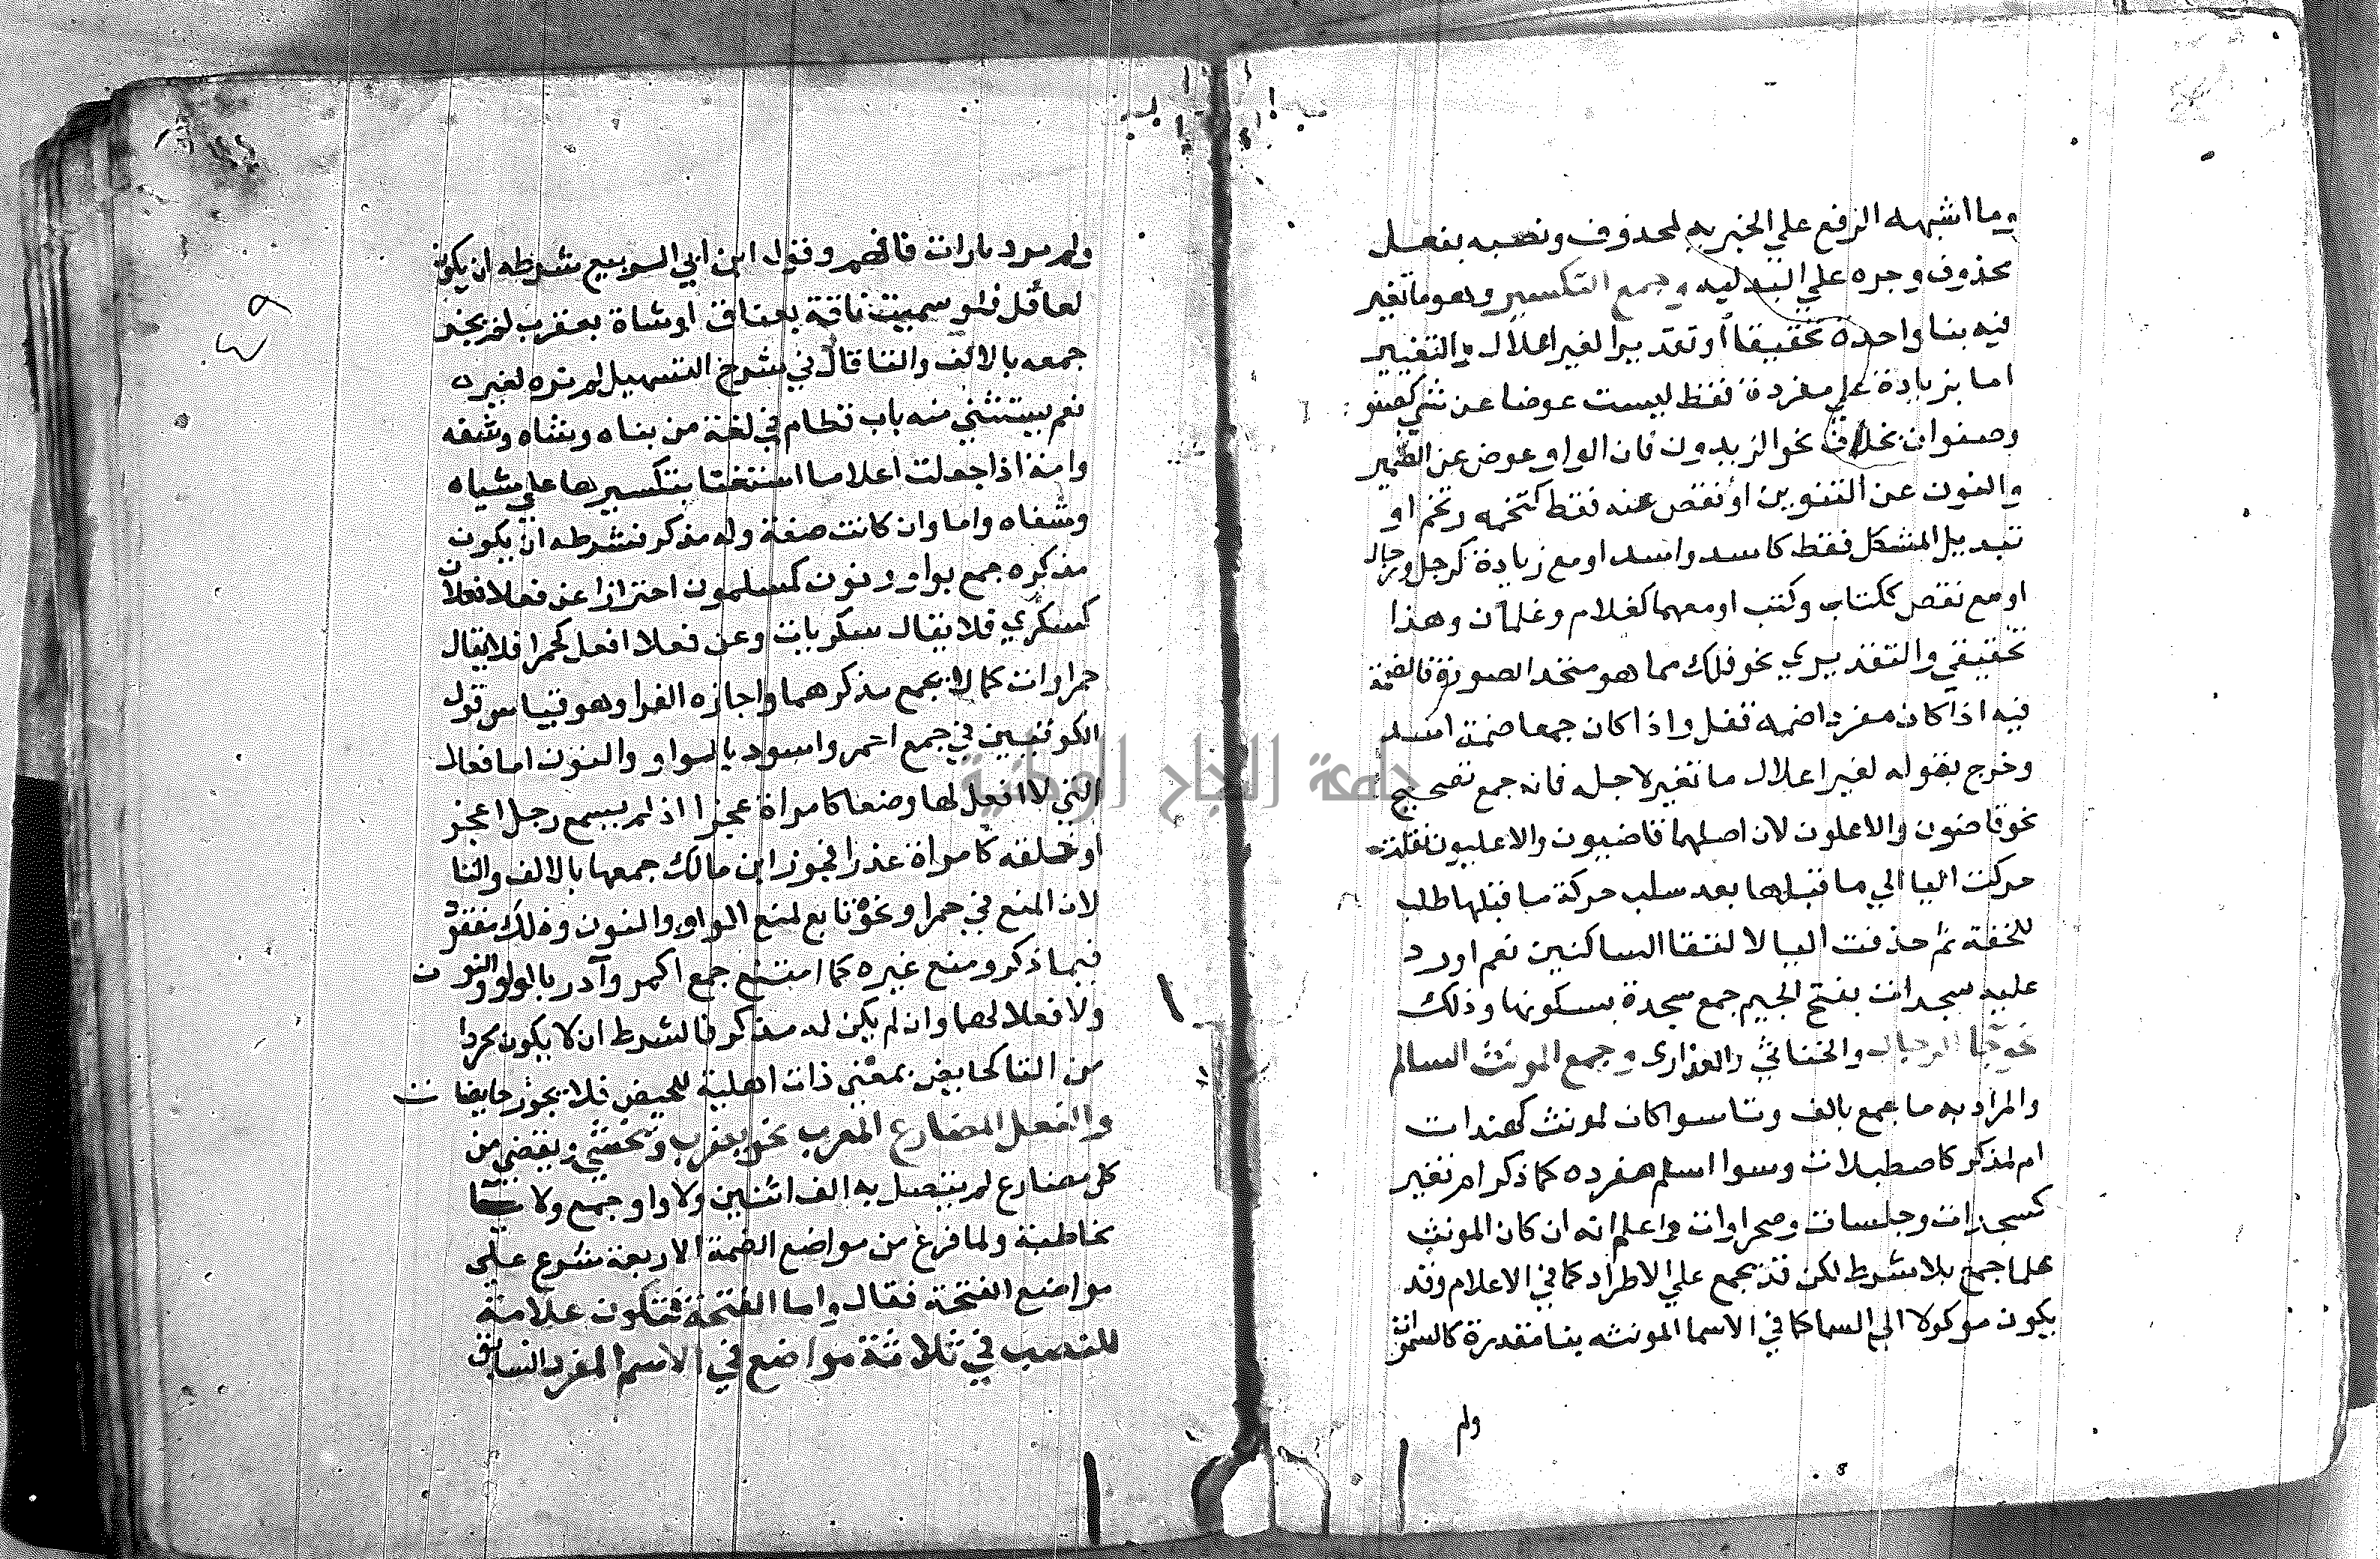 وما اشبهه الرفع علي الخبريه لمحذوف ونصبه بفعل
محذوف وجره علي البدليه وجمع التكسير وهو ما تغير
فيه بنا واحده تحقيقا او تقديرا لغير اعلال والتغيير
اما بزيادة علي مفرده فقط ليست عوضا عن شي كصنو
وصنوان بخلاف نحو الزيدون فان الواو عوض عن الضمير
والنون عن التنوين او نقص عنه فقط كتخمه وتخم او
تبديل الشكل فقط كاسد واسد او مع زيادة كرجل ورجال
او مع نقص ككتاب وكتب او معهما كغلام وغلمان وهذا
تحقيقي والتقديري نحو فلك مما هو متحد الصورة فالضمة
فيه اذا كان مفردا ضمه قفل واذا كان جمعا ضمة اسد
وخرج بقوله لغير اعلال ما تغير لاجله فانه جمع تصحيح
نحو قاضون والاعلون لان اصلهما قاضيون والاعليون نقلت
حركت اليا الي ما قبلها بعد سلب حركة ما قبلها طلب
للخفة ثم حذفت اليا لالتقا الساكنين نعم اورد
عليه سجدات بفتح الجيم جمع سجدة بسكونها وذلك
نحو جا الرجال والخناثي والعذارى وجمع المونث السالم
والمراد به ما جمع بالف وتا سوا كان لمونث كهندات
ام لمذكر كاصطبلات وسوا اسلم مفرده كما ذكر ام تغير
كسجدات وجلسات وصحراوات واعلم انه ان كان المونث
علما جمع بلا شرط لكن قد يجمع علي الاطراد كما في الاعلام وقد
يكون موكولا الي السماع كما في الاسما المونثه بتا مقدرة كالسموات
ولم
٤٩
ولم سود بارات فافهم وفقول ابن ابي الربيع شرطه ان يكون
لعاقل فلو سميت ناقة بعناق او شاة بعقرب لم يجز
جمعه بالالف والتا قال في شرح التسهيل لم نره لغيره
نعم يستثني منه باب قطام في لغة من بناه وشاه وشفه
وامة اذا جعلت اعلاما استغنتا بتكسيرها علي شياه
وشفاه واما وان كانت صفة وله مذكر فشرطه ان يكون
مذكره جمع بواو ونون كمسلمون احترازا عن فعلا فعلان
كسكري فلا يقال سكريات وعن فعلا افعل كحمرا فلا يقال
حمراوات كما لا يجمع مذكرهما واجازه الفرا وهو قياس قول
الكوفيين في جمع احمر واسود بالواو والنون اما فعلا
التي لا افعل لها وضعا كامراة عجزا اذ لم يسمع رجل اعجز
او خلقه كامراة عذرا فجوز ابن مالك جمعها بالالف والتا
لان المنع في حمرا ونحوه تابع لمنع الواو والنون وذلك مفقود
فيما ذكر ومنع غيره كما امتنع جمع اكمر وآدر بالواو والنون
ولا فعلا لهما وان لم يكن له مذكر فالشرط ان لا يكون مجردا
من التا كحايض بمعني ذات اهلية للحيض فلا يجوز حايضات
والفعل المضارع المعرب نحو يضرب ويخشي ويقضي من
كل مضارع لم يتصل به الف اثنين ولا واو جمع ولا يا
مخاطبة ولما فرغ من مواضع الضمة الاربعة شرع علي
مواضع الفتحة فقال واما الفتحة فتكون علامة
للنصب في ثلاثة مواضع في الاسم المفرد السابق
جامعة النجاح الوطنية